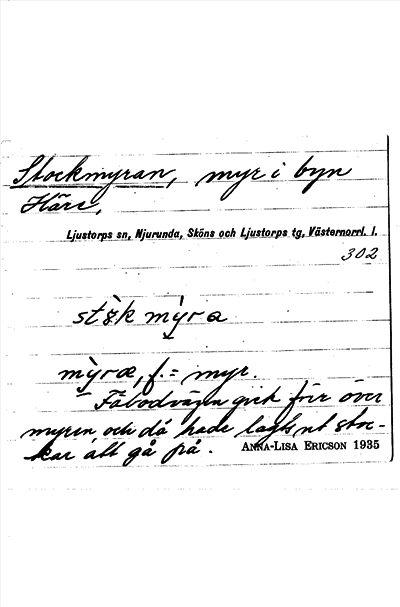 Stockmyran, myr i byn
Häre,
Ljustorps sn, Njurunda, Sköns och Ljustorps tg, Västernorrl. l.
302
stòk mỳra
mỳræ, f. = myr.
Fäbodvägen gick förr över
myren, och då hade lagts ut stoc-
kar att gå på.
ANNA-LISA ERICSON 1935